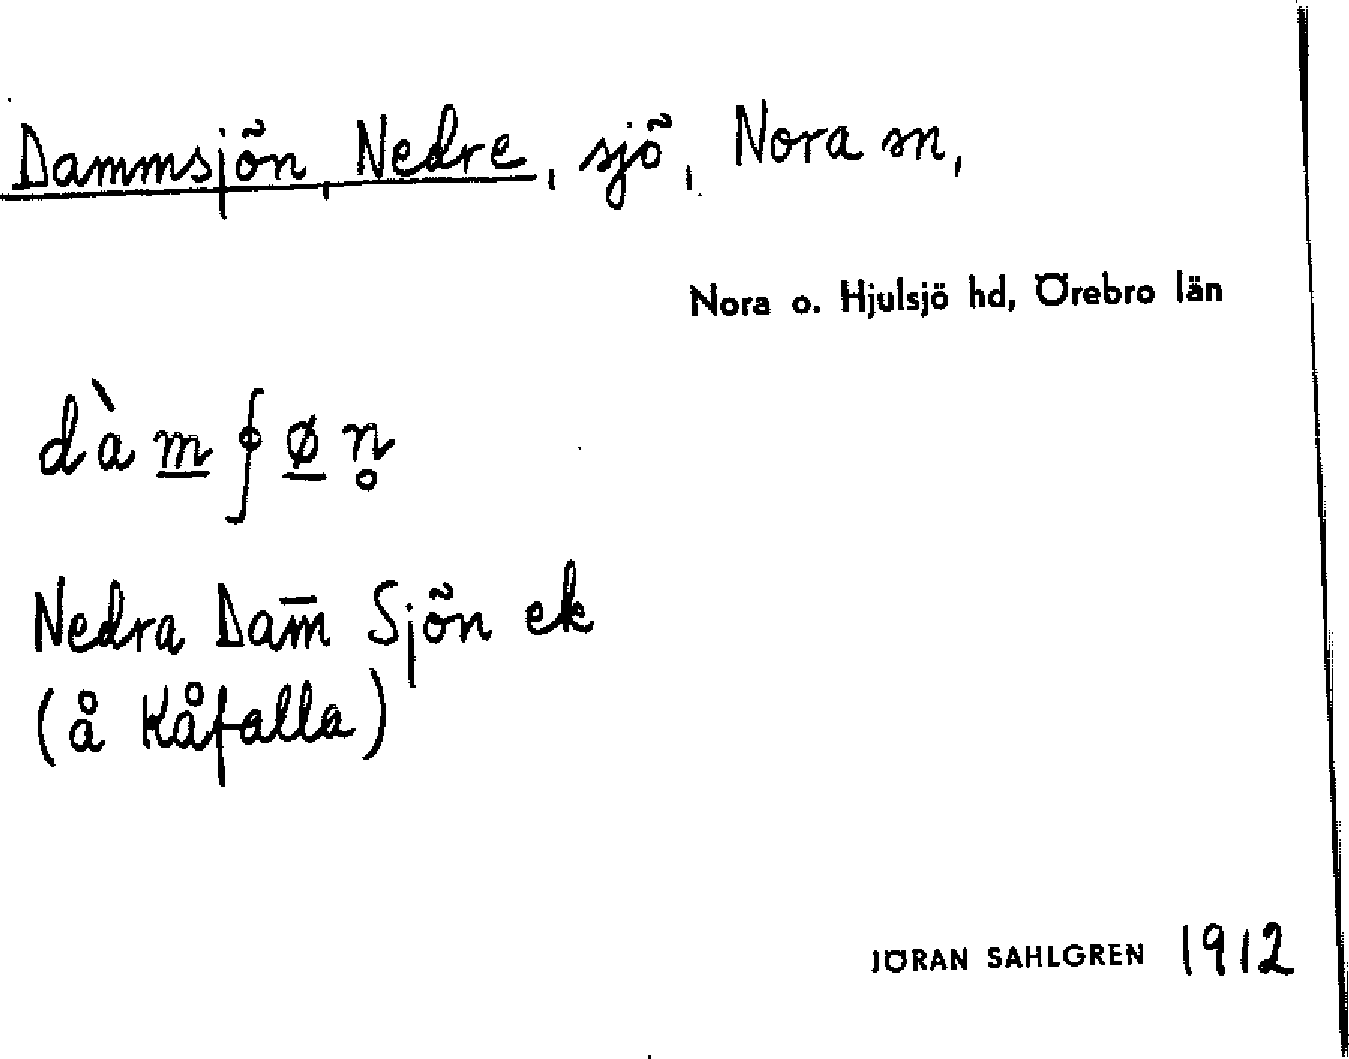 Dammsjön, Nedre, sjö, Nora sn,
Nora o. Hjulsjö hd, Örebro län
dàm̲ʄø̲n̥
Nedra Dam̅ Sjön ek
(å Kåfalla)
JÖRAN SAHLGREN 1912